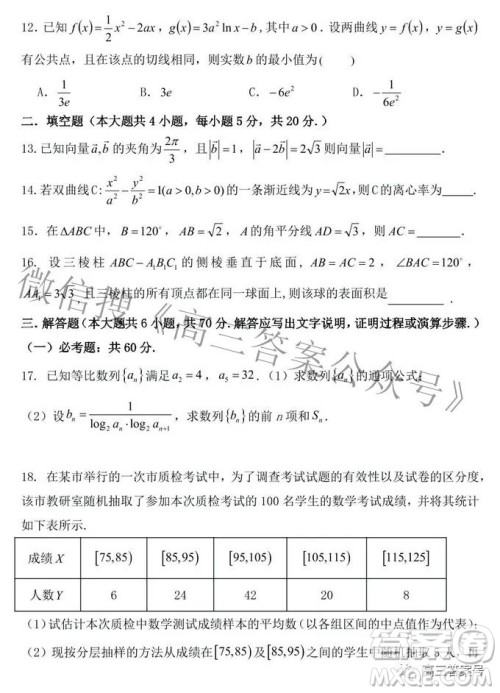 12. 已知 f(x)=1/2x²-2ax, g(x)=3a²ln x-b,其中 a>0. 设两曲线 y=f(x), y=g(x)
有公共点，且在该点的切线相同，则实数 b 的最小值为( )
A. 1/3e B. 3e C. -6e² D. -1/6e²
二. 填空题（本大题共 4 小题，每小题 5 分，共 20 分.）
13. 已知向量 a⃗,b⃗ 的夹角为 2π/3，且|b⃗|=1，|a⃗-2b⃗|=2√3 则向量|a⃗|=______.
14. 若双曲线 C: x²/a²-y²/b²=1(a>0,b>0) 的一条渐近线为 y=√2x，则 C 的离心率为______.
15. 在 ΔABC 中，B=120°，AB=√2，A 的角平分线 AD=√3，则 AC=______.
16. 设三棱柱 ABC-A₁B₁C₁ 的侧棱垂直于底面，AB=AC=2，∠BAC=120°，
AA₁=3√3 且三棱柱的所有顶点都在同一球面上，则该球的表面积是______.
三. 解答题（本大题共 6 小题，共 70 分. 解答应写出文字说明，证明过程或演算步骤.）
（一）必考题：共 60 分.
17. 已知等比数列{aₙ}满足 a₂=4，a₅=32.（1）求数列{aₙ}的通项公式；
（2）设 bₙ=1/(log₂aₙ·log₂aₙ₊₁)，求数列{bₙ}的前 n 项和 Sₙ.
18. 在某市举行的一次市质检考试中，为了调查考试试题的有效性以及试卷的区分度，
该市教研室随机抽取了参加本次质检考试的 100 名学生的数学考试成绩，并将其统计
如下表所示.
成绩 X [75,85) [85,95) [95,105) [105,115) [115,125]
人数Y 6 24 42 20 8
（1）试估计本次质检中数学测试成绩样本的平均数（以各组区间的中点值作为代表）；
（2）现按分层抽样的方法从成绩在[75,85)及[85,95)之间的学生中随机抽取 5 人，再
微信搜《高三答案公众号》
高三答案号